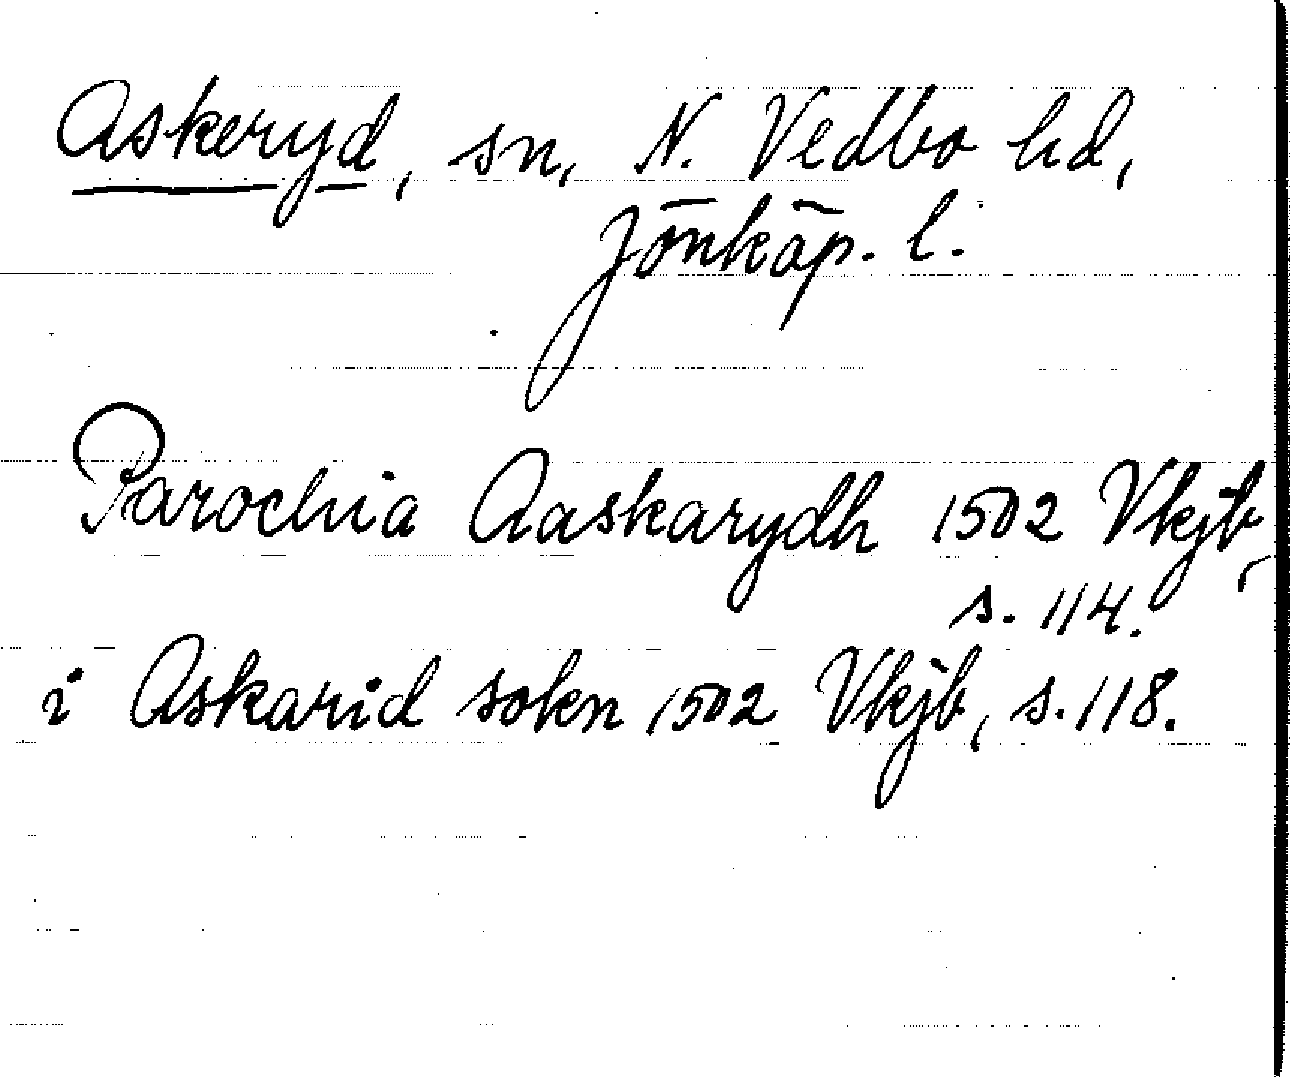 Askeryd, sn, N. Vedbo hd,
Jönköp. l.
Parochia Aaskarydh 1502 Vkjb,
s. 114.
i Askarid sokn 1502 Vkjb, s. 118.